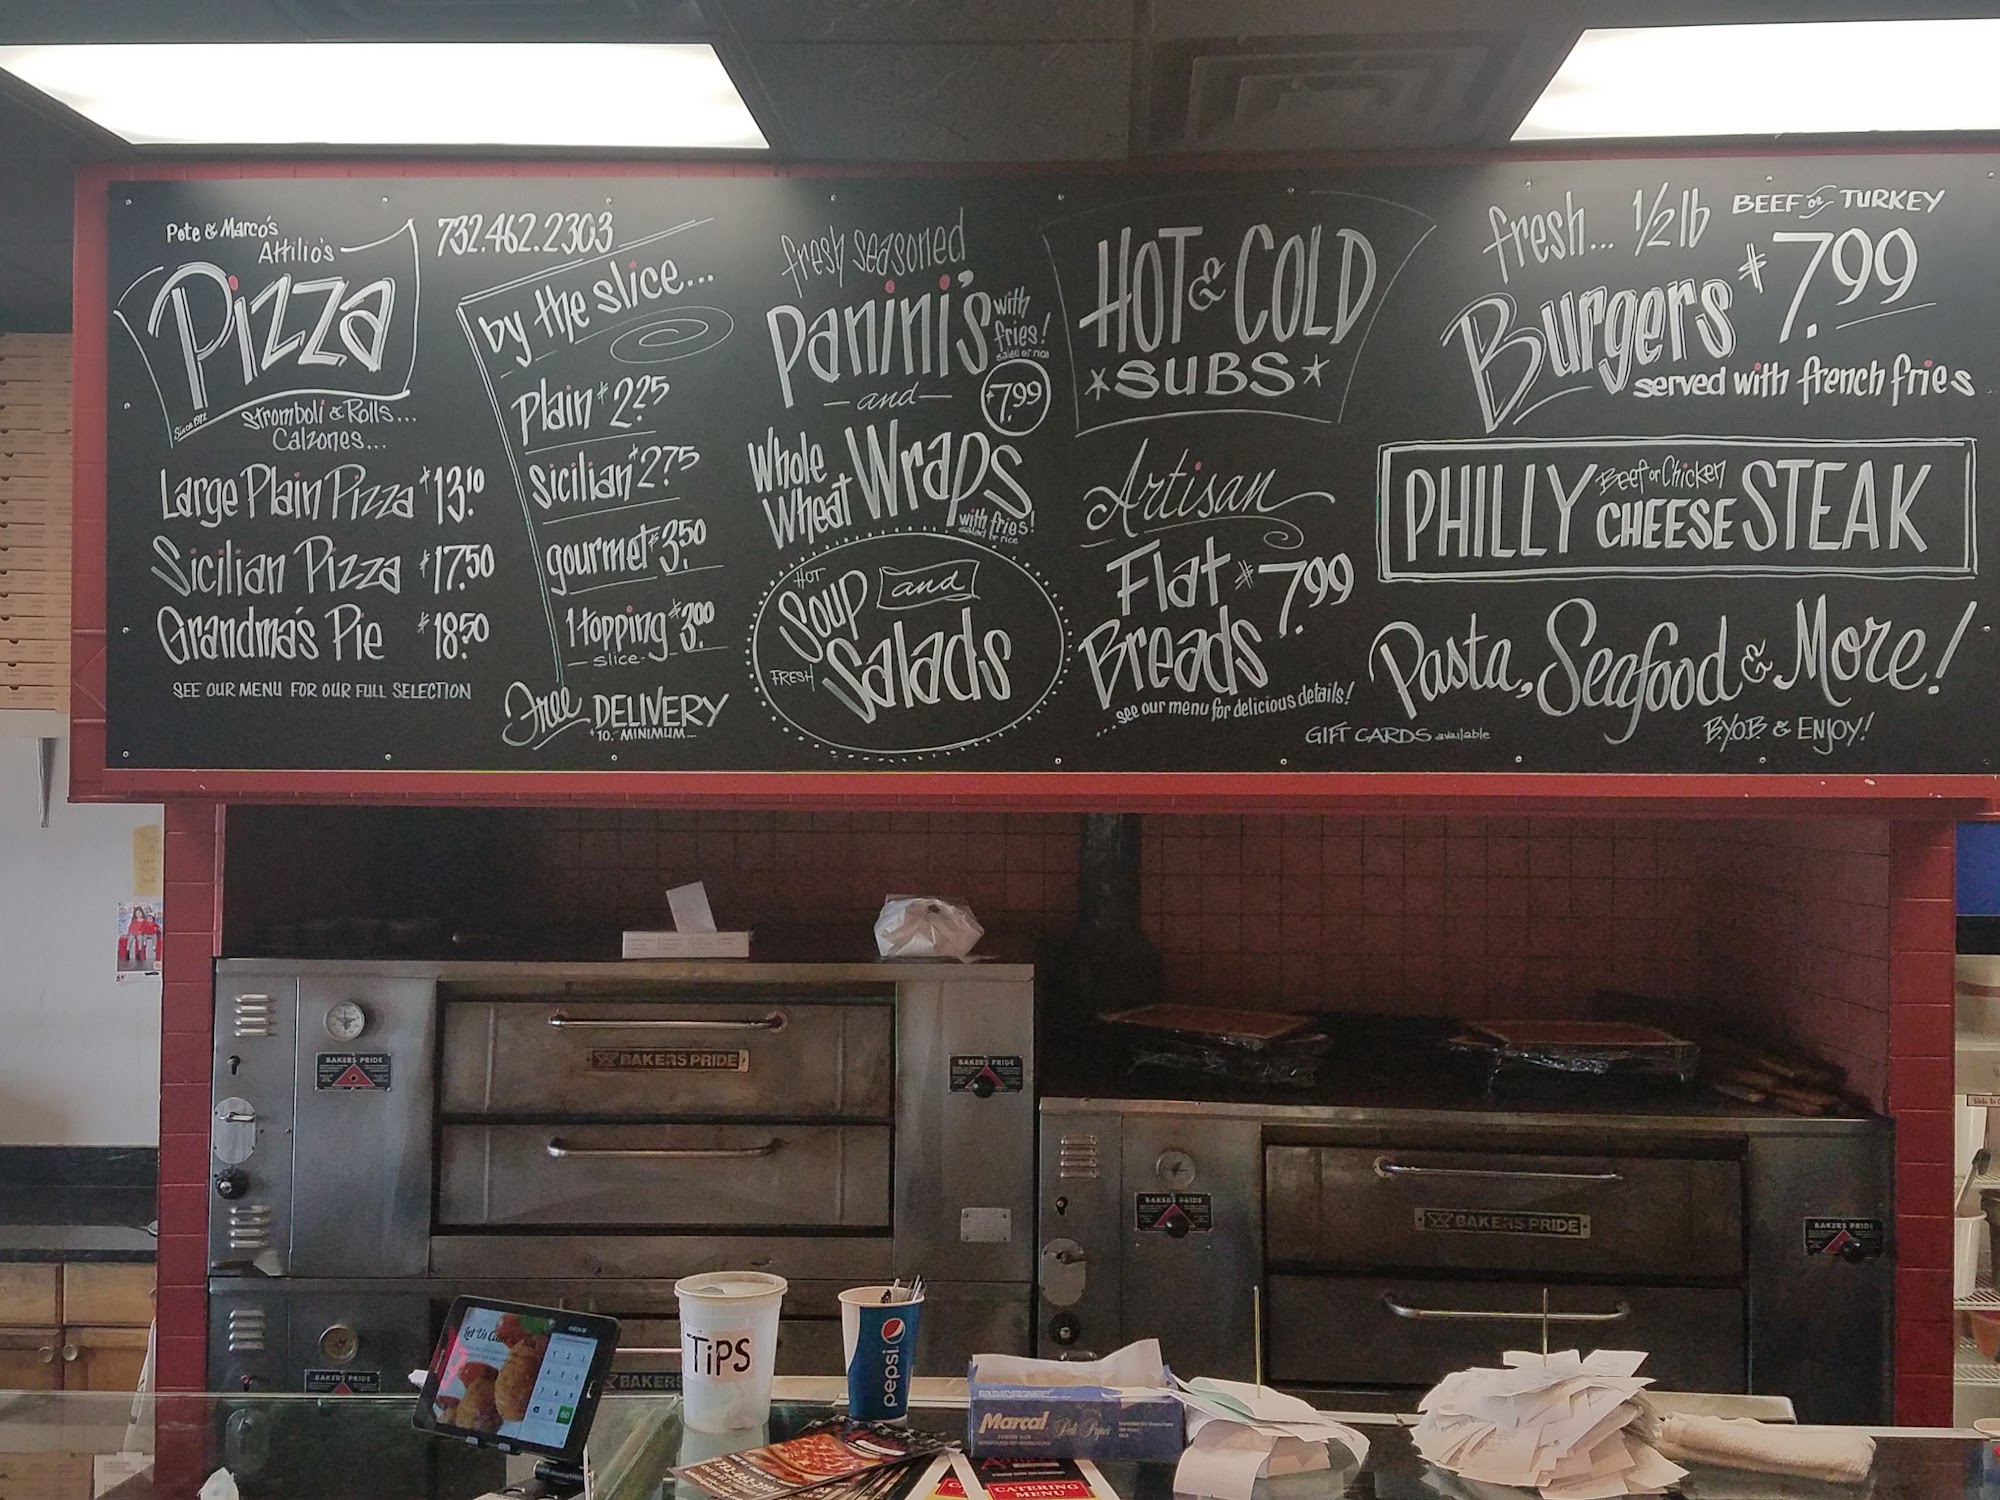 Pete & Marco's
Attilio's
Pizza
Since 1972
Stromboli & Rolls...
Calzones...
Large Plain Pizza $13.10
Sicilian Pizza $17.50
Grandma's Pie $18.50
SEE OUR MENU FOR OUR FULL SELECTION
732.462.2303
by the slice...
Plain $2.25
Sicilian $2.75
gourmet $3.50
1 topping $3.00
slice
Free DELIVERY
$10. MINIMUM...
fresh seasoned
Panini's with
fries!
salad or rice
$7.99
and
Whole
Wheat Wraps
with fries!
salad or rice
HOT
Soup and
FRESH Salads
HOT & COLD
SUBS
Artisan
Flat $7.99
Breads
see our menu for delicious details!
GIFT CARDS available
fresh... 1/2 lb BEEF or TURKEY
Burgers $7.99
served with french fries
PHILLY Beef or Chicken CHEESE STEAK
Pasta, Seafood & More!
B.Y.O.B. & ENJOY!
BAKERS PRIDE
BAKERS PRIDE
BAKERS PRIDE
BAKERS PRIDE
BAKERS PRIDE
BAKERS PRIDE
BAKERS PRIDE
BAKERS PRIDE
TiPS
pepsi
Marcal
Deli Paper
732-462-2303
CATERING
MENU